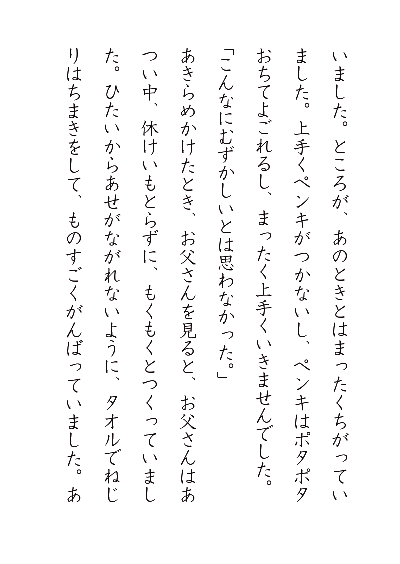 いました。ところが、あのときとはまったくちがってい
ました。上手くペンキがつかないし、ペンキはポタポタ
おちてよごれるし、まったく上手くいきませんでした。
「こんなにむずかしいとは思わなかった。」
あきらめかけたとき、お父さんを見ると、お父さんはあ
つい中、休けいもとらずに、もくもくとつくっていまし
た。ひたいからあせがながれないように、タオルでねじ
りはちまきをして、ものすごくがんばっていました。あ